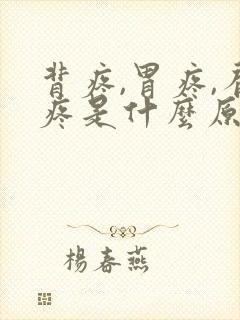 背疼,胃疼,
疼是什麼原
楊春燕